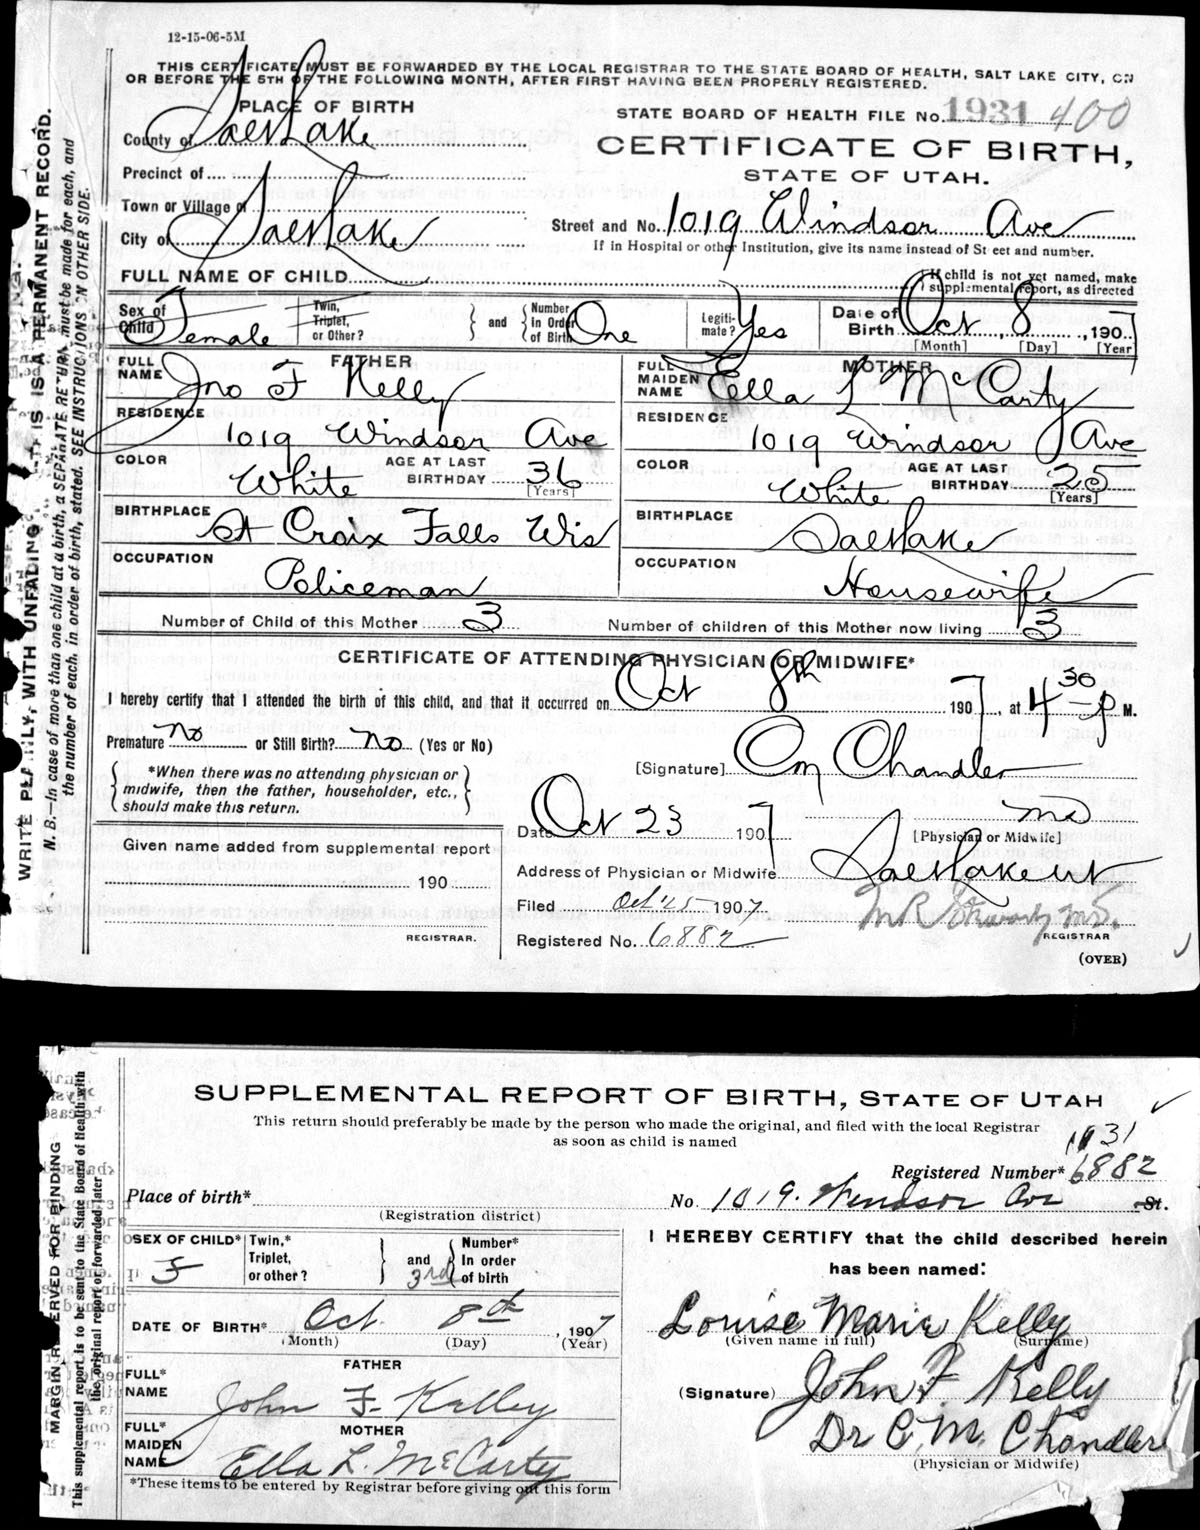 12-15-06-5M
THIS CERTIFICATE MUST BE FORWARDED BY THE LOCAL REGISTRAR TO THE STATE BOARD OF HEALTH, SALT LAKE CITY, ON
OR BEFORE THE 5TH OF THE FOLLOWING MONTH, AFTER FIRST HAVING BEEN PROPERLY REGISTERED.
PLACE OF BIRTH
STATE BOARD OF HEALTH FILE No. 1931 400
County of Salt Lake
CERTIFICATE OF BIRTH,
STATE OF UTAH.
Precinct of
Town or Village of
City of Salt Lake
Street and No. 1019 Windsor Ave
If in Hospital or other Institution, give its name instead of Street and number.
FULL NAME OF CHILD
If child is not yet named, make supplemental report, as directed
Sex of Child Female Twin, Triplet, or Other? and Number In Order of Birth One Legitimate? Yes Date of Birth Oct 8, 1907
[Month] [Day] [Year]
FATHER
FULL NAME Jno F Kelly
RESIDENCE
1019 Windsor Ave
COLOR White AGE AT LAST BIRTHDAY 36
[Years]
BIRTHPLACE St Croix Falls Wis
OCCUPATION
Policeman
MOTHER
FULL MAIDEN NAME Ella L McCarty
RESIDENCE
1019 Windsor Ave
COLOR White AGE AT LAST BIRTHDAY 25
[Years]
BIRTHPLACE
Salt Lake
OCCUPATION
Housewife
Number of Child of this Mother 3 Number of children of this Mother now living 3
CERTIFICATE OF ATTENDING PHYSICIAN OR MIDWIFE*
I hereby certify that I attended the birth of this child, and that it occurred on Oct 8th 1907, at 4 30 P M.
Premature No or Still Birth? No (Yes or No)
[Signature] C M Chandler
*When there was no attending physician or
midwife, then the father, householder, etc.,
should make this return.
MD
[Physician or Midwife]
Date Oct 23 1907
Given name added from supplemental report
190
REGISTRAR.
Address of Physician or Midwife Salt Lake Ut
Filed Oct 25 1907
Registered No. 6882
REGISTRAR
(OVER)
WRITE PLAINLY, WITH UNFADING THIS IS A PERMANENT RECORD.
N. B.—In case of more than one child at a birth, a SEPARATE RETURN must be made for each, and
the number of each, in order of birth, stated. SEE INSTRUCTIONS ON OTHER SIDE.
SUPPLEMENTAL REPORT OF BIRTH, STATE OF UTAH
This return should preferably be made by the person who made the original, and filed with the local Registrar
as soon as child is named
1931
Registered Number* 6882
Place of birth* No. 1019. Windsor Ave St.
(Registration district)
SEX OF CHILD* F Twin,* Triplet, or other? and 3rd Number* In order of birth
DATE OF BIRTH* Oct. 8th, 1907
(Month) (Day) (Year)
FATHER
FULL* NAME John F. Kelley
MOTHER
FULL* MAIDEN NAME Ella L. McCarty
*These items to be entered by Registrar before giving out this form
I HEREBY CERTIFY that the child described herein
has been named:
Louise Marie Kelly
(Given name in full) (Surname)
(Signature) John F Kelly
Dr C. M. Chandler
(Physician or Midwife)
MARGIN RESERVED FOR BINDING
This supplemental report is to be sent to the State Board of Health with
the original report or forwarded later